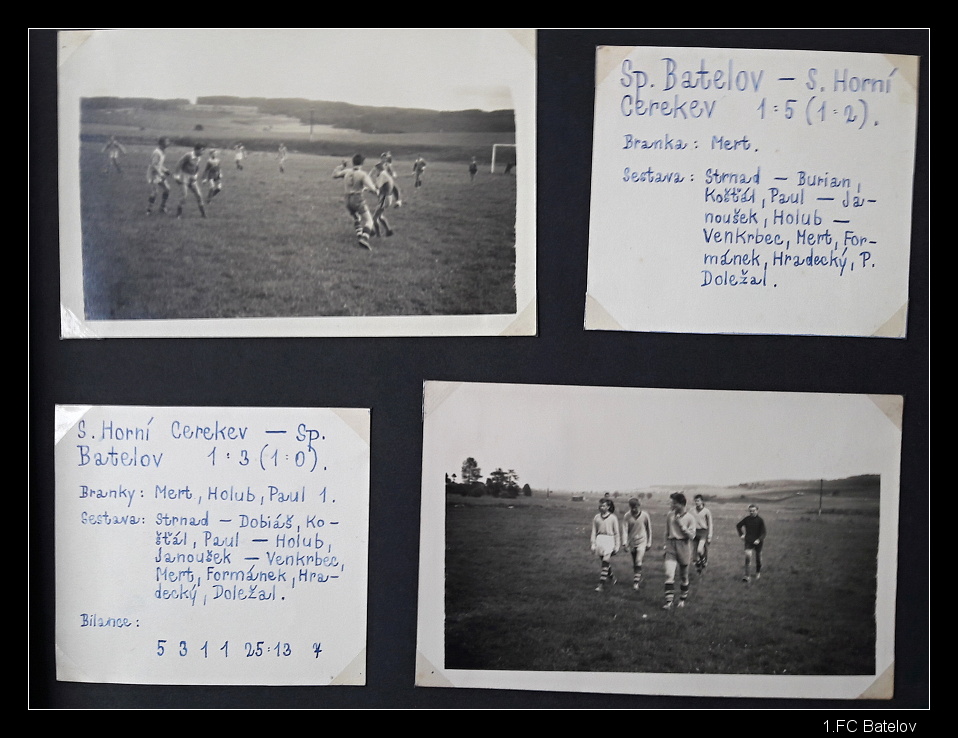 Sp. Batelov – S. Horní
Cerekev 1:5 (1:2).
Branka: Mert.
Sestava: Strnad – Burian,
Košťál, Paul – Ja-
noušek, Holub –
Venkrbec, Mert, For-
mánek, Hradecký, P.
Doležal.
S. Horní Cerekev – Sp.
Batelov 1:3 (1:0).
Branky: Mert, Holub, Paul 1.
Sestava: Strnad – Dobiáš, Ko-
šťál, Paul – Holub,
Janoušek – Venkrbec,
Mert, Formánek, Hra-
decký, Doležal.
Bilance:
5 3 1 1 25:13 7
1.FC Batelov